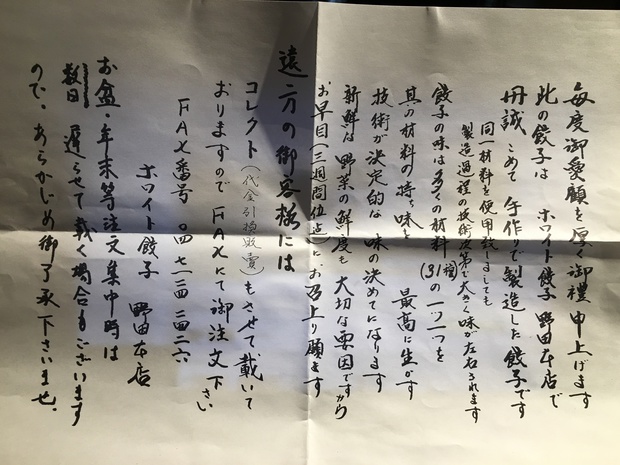 毎度御愛顧を厚く御禮申上げます
此の餃子は ホワイト餃子野田本店で
丹誠こめて手作りで製造した餃子です
同一材料を使用致しましても
製造過程の技術次第で大きく味が左右されます
餃子の味は多くの材料(31種)の一ツ一ツを
其の材料の持つ味を 最高に生かす
技術が決定的な味の決めてになります
新鮮な野菜の鮮度も大切な要因ですから
お早目(三週間位迄)にお召上り願ます
遠方の御客様には
コレクト(代金引換販賣)もさせて載いて
おりますのでFAXにて御注文下さい
FAX番号 〇四七一ー二四ー二四二六
ホワイト餃子 野田本店
お盆・年末等注文集中時は
数日遅らせて載く場合もございます
ので、あらかじめ御了承下さいませ。